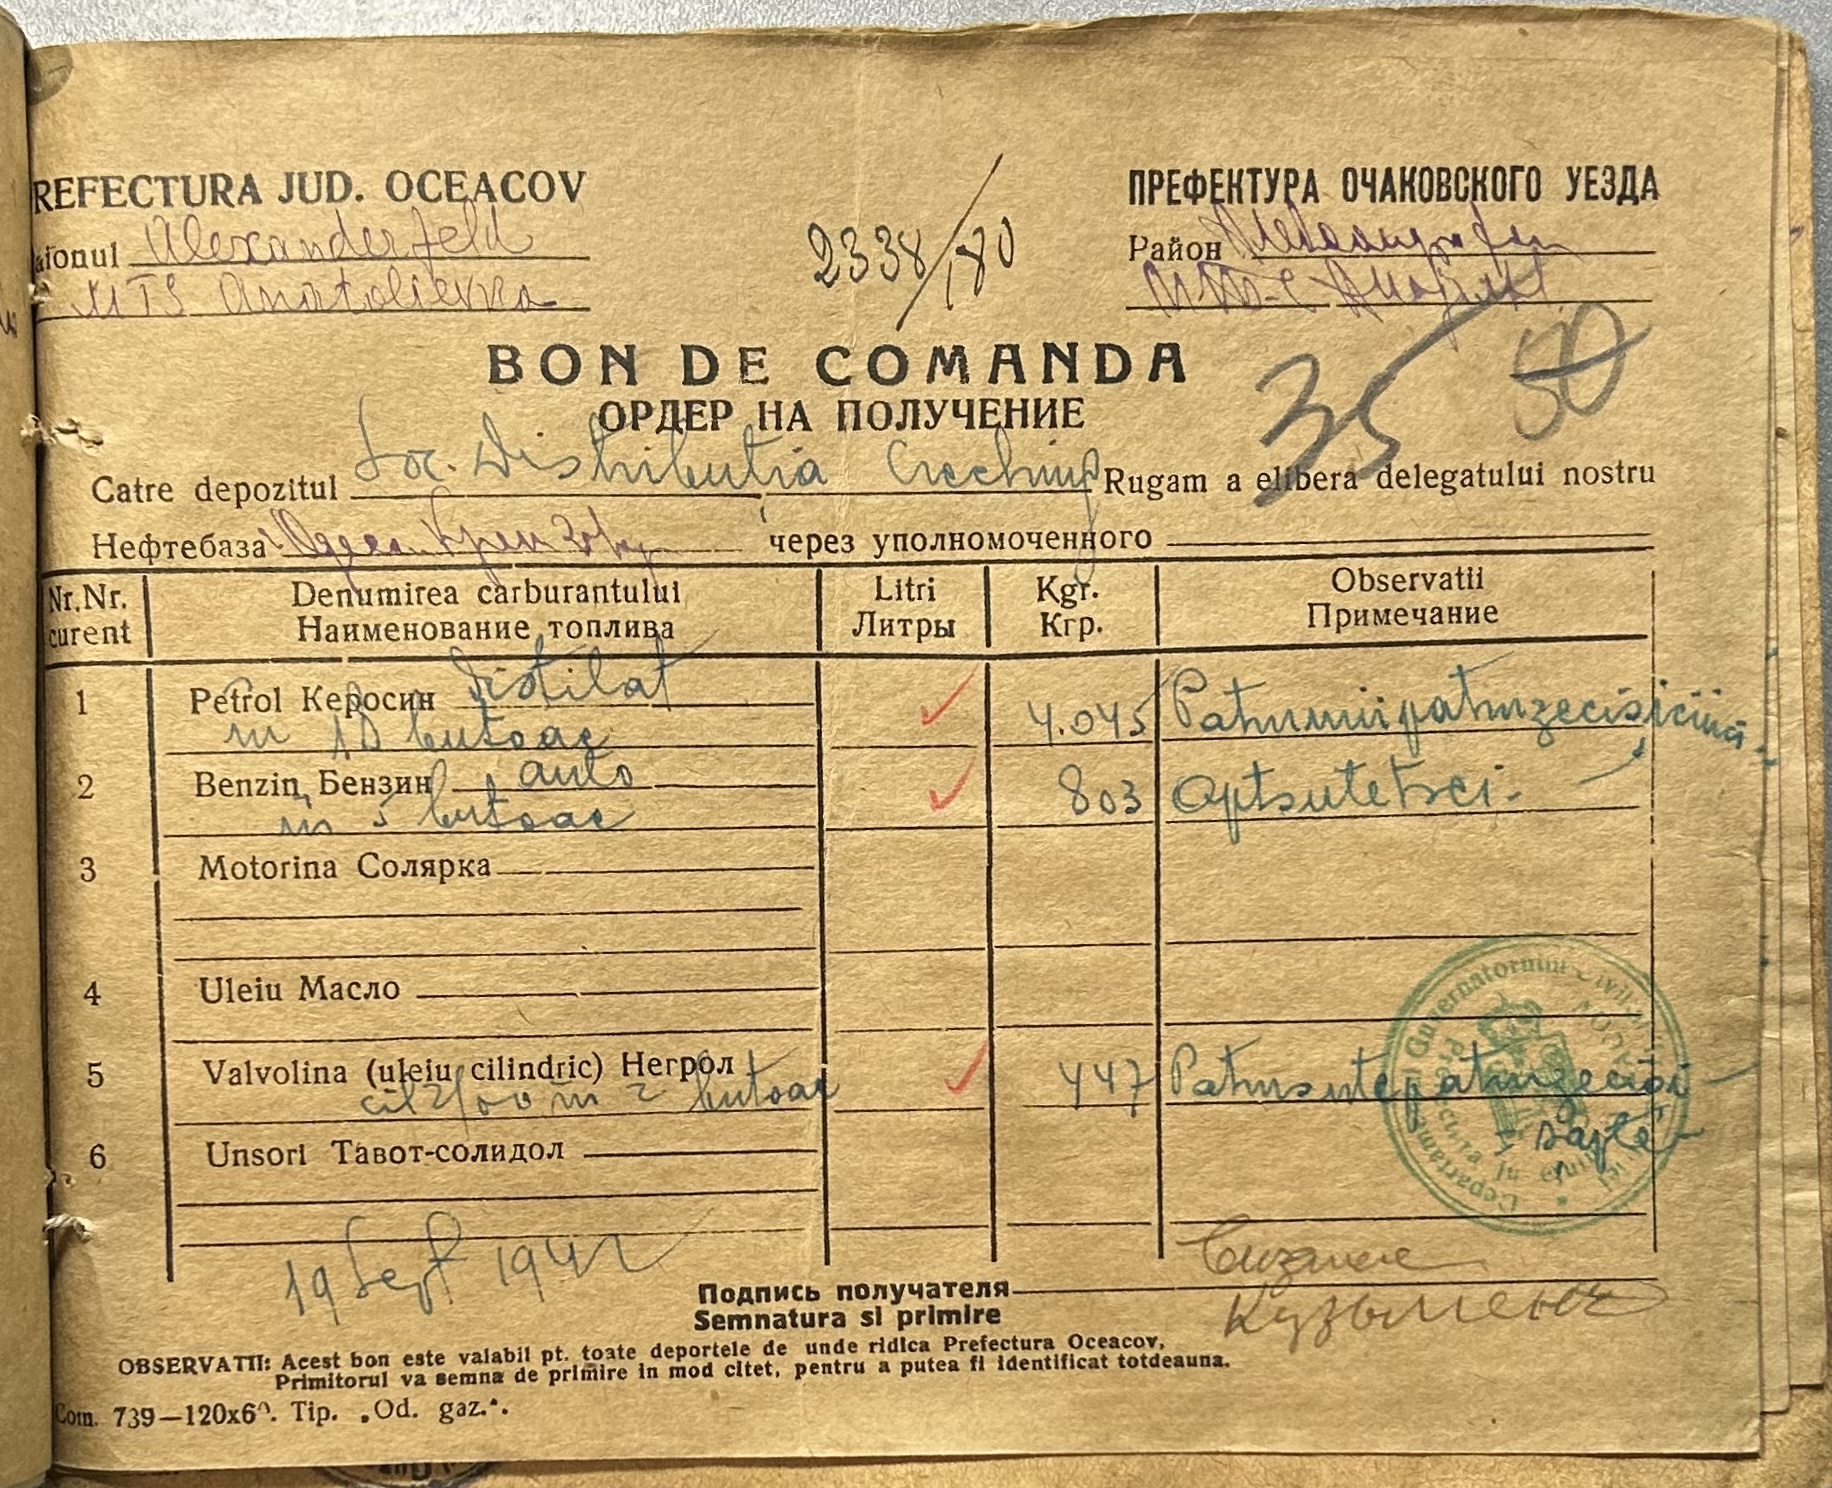 REFECTURA JUD. OCEACOV
aionul Alexanderfeld
MTS Anatolievca
2338/180
ПРЕФЕКТУРА ОЧАКОВСКОГО УЕЗДА
Район
35 50
BON DE COMANDA
ОРДЕР НА ПОЛУЧЕНИЕ
Catre depozitul Soc. Distributia Rugam a elibera delegatului nostru
Нефтебаза через уполномоченного
Nr.Nr. curent Denumirea carburantului Litri Kgr. Observatii
Наименование топлива Литры Кгр. Примечание
1 Petrol Керосин Distilat 4.045 Patrumiipatruzecisicinci
in 18 butoae
2 Benzin, Бензин auto 803 Optsutetrei
in 5 butoae
3 Motorina Солярка
4 Uleiu Масло
5 Valvolina (uleiu cilindric) Негрол 447 Patrusutepatruzecisi
cil 2/00 in 2 butoae sapte
6 Unsori Тавот-солидол
Guvernatorului Civil
19 Sept 1942
Подпись получателя
Semnatura si primire Кузьменко
OBSERVATII: Acest bon este valabil pt. toate deportele de unde ridica Prefectura Oceacov,
Primitorul va semna de primire in mod citet, pentru a putea fi identificat totdeauna.
Com. 739—120x60. Tip. „Od. gaz.".